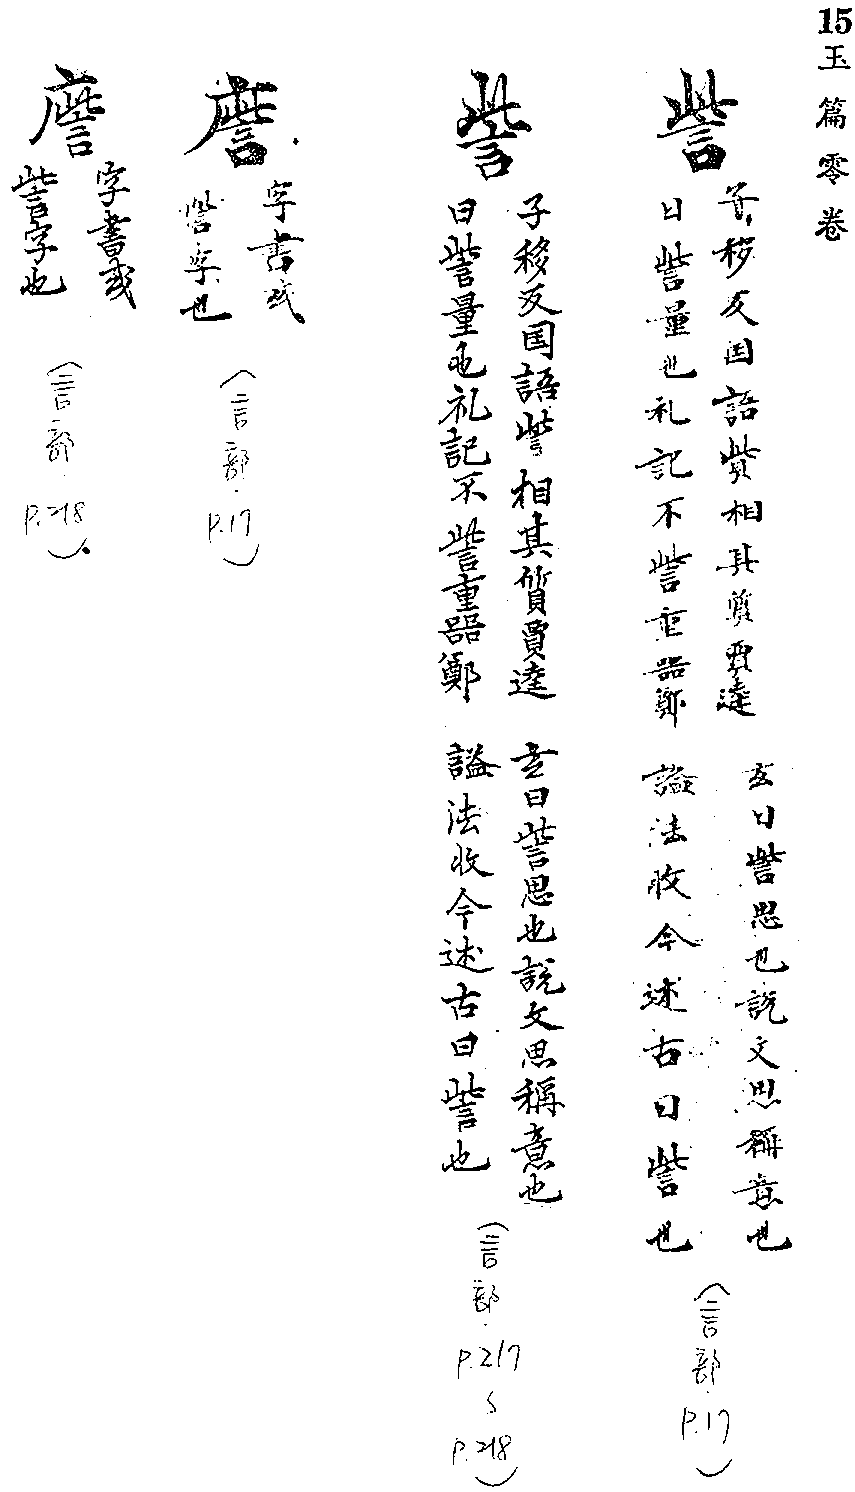 15 玉篇零卷
訾
子移反国語訾相其質賈逵
曰訾量也礼記不訾重器鄭
玄曰訾思也說文思稱意也
謚法收今述古曰訾也
(言部·P.17)
訾
子移反国語訾相其質賈逵
曰訾量也礼記不訾重器鄭
玄曰訾思也說文思稱意也
謚法收今述古曰訾也
(言部·P.217~P.218)
字書或
訾字也
(言部·P.17)
字書或
訾字也
(言部·P.218)